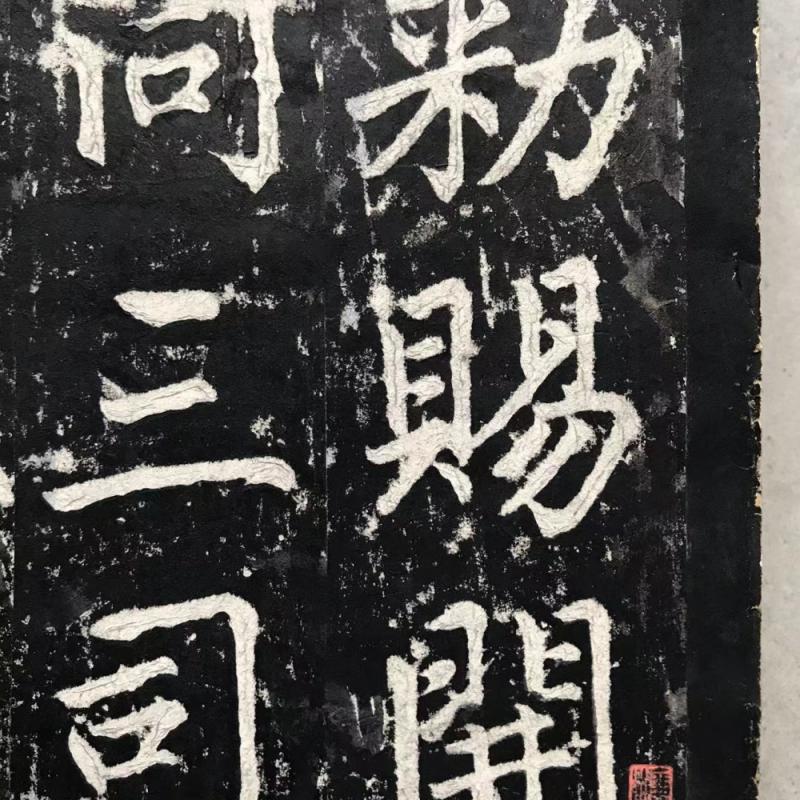 勅賜開
同三司